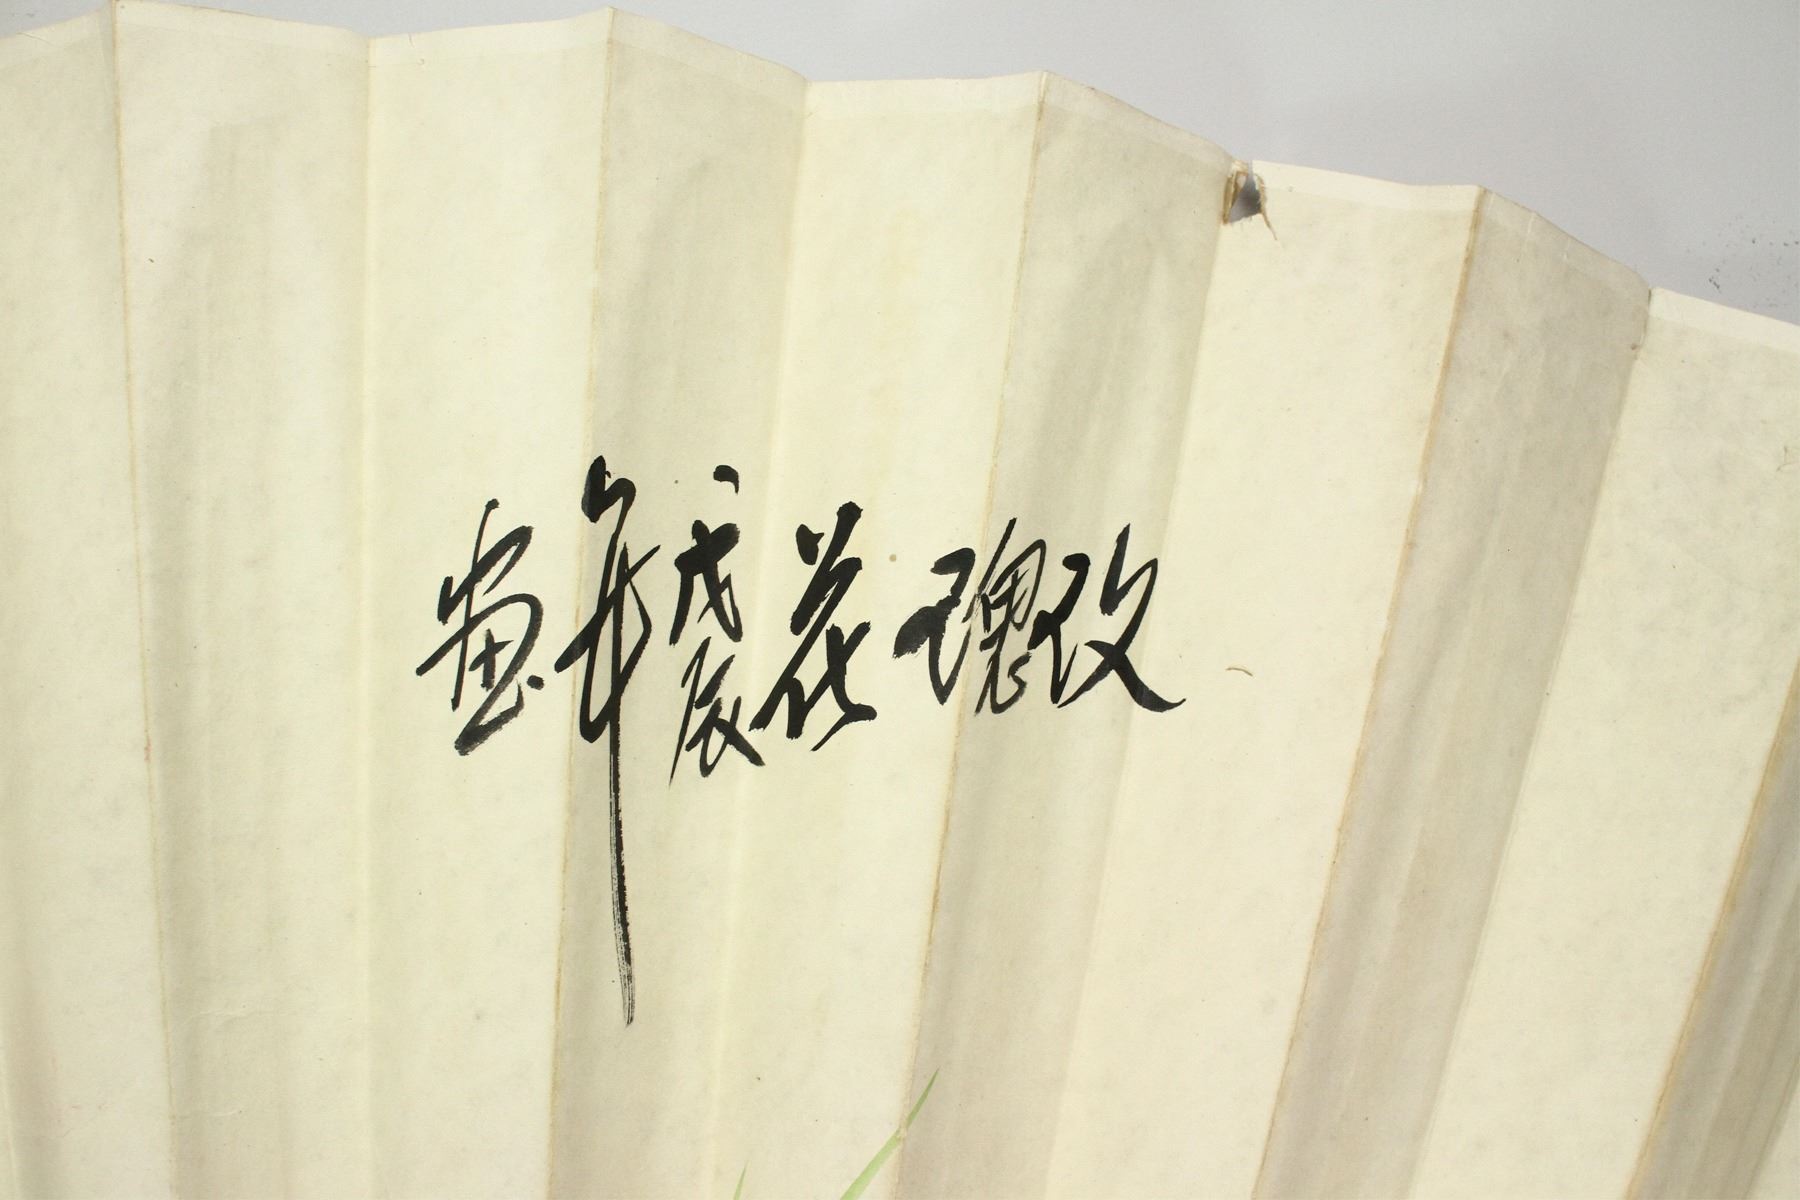 玫瑰花戊辰年画